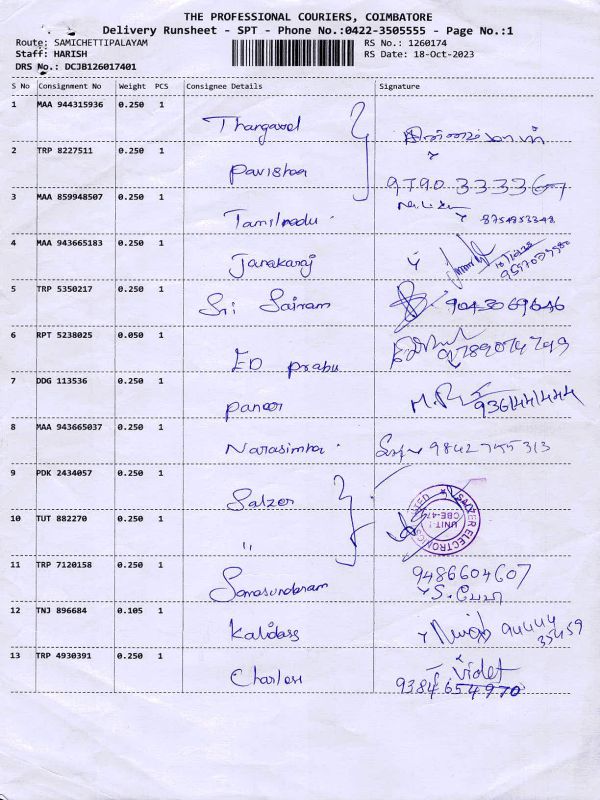 THE PROFESSIONAL COURIERS, COIMBATORE
Delivery Runsheet - SPT - Phone No.:0422-3505555 - Page No.:1
Route: SAMICHETTIPALAYAM
RS No.: 1260174
Staff: HARISH
RS Date: 18-Oct-2023
DRS No.: DCJB126017401
S No Consignment No Weight PCS Consignee Details Signature
1 MAA 944315936 0.250 1 Thangavel
2 TRP 8227511 0.250 1 Pavishaa
9790 333367
3 MAA 859948507 0.250 1 Tamilnadu
8754853348
4 MAA 943665183 0.250 1 Janakaraj
5 TRP 5350217 0.250 1 Sri Sairam 9043069646
6 RPT 5238025 0.050 1 ED Prabu
7 DDG 113536 0.250 1 Paneer
8 MAA 943665037 0.250 1 Narasimha 9842755313
9 PDK 2434057 0.250 1 Salzer
SALZER ELECTRONICS LIMITED
UNIT-1
CBE-47
10 TUT 882270 0.250 1 "
11 TRP 7120158 0.250 1 Somasundaram 9486604607
12 TNJ 896684 0.105 1 Kalidass 94444
35459
13 TRP 4930391 0.250 1 Charles Violet
9384654970